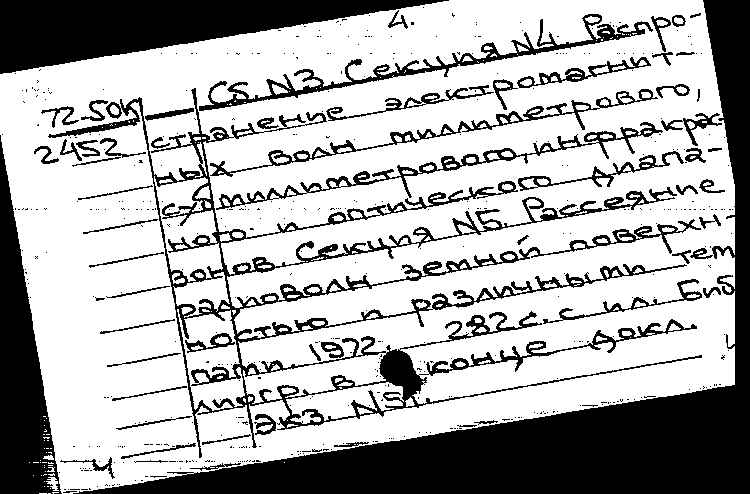 4.
72-50к Сб. N3. Секция N4. Распро-
2452 странение электромагнит-
ных волн миллиметрового,
субмиллиметрового, инфракрас-
ного и оптического диапа-
зонов. Секция N5. Рассеяние
радиоволн земной поверхн-
ностью и различными тем
пами. 1972. 282 с. с ил. Биб
лиогр. в конце докл.
Экз. N
ч